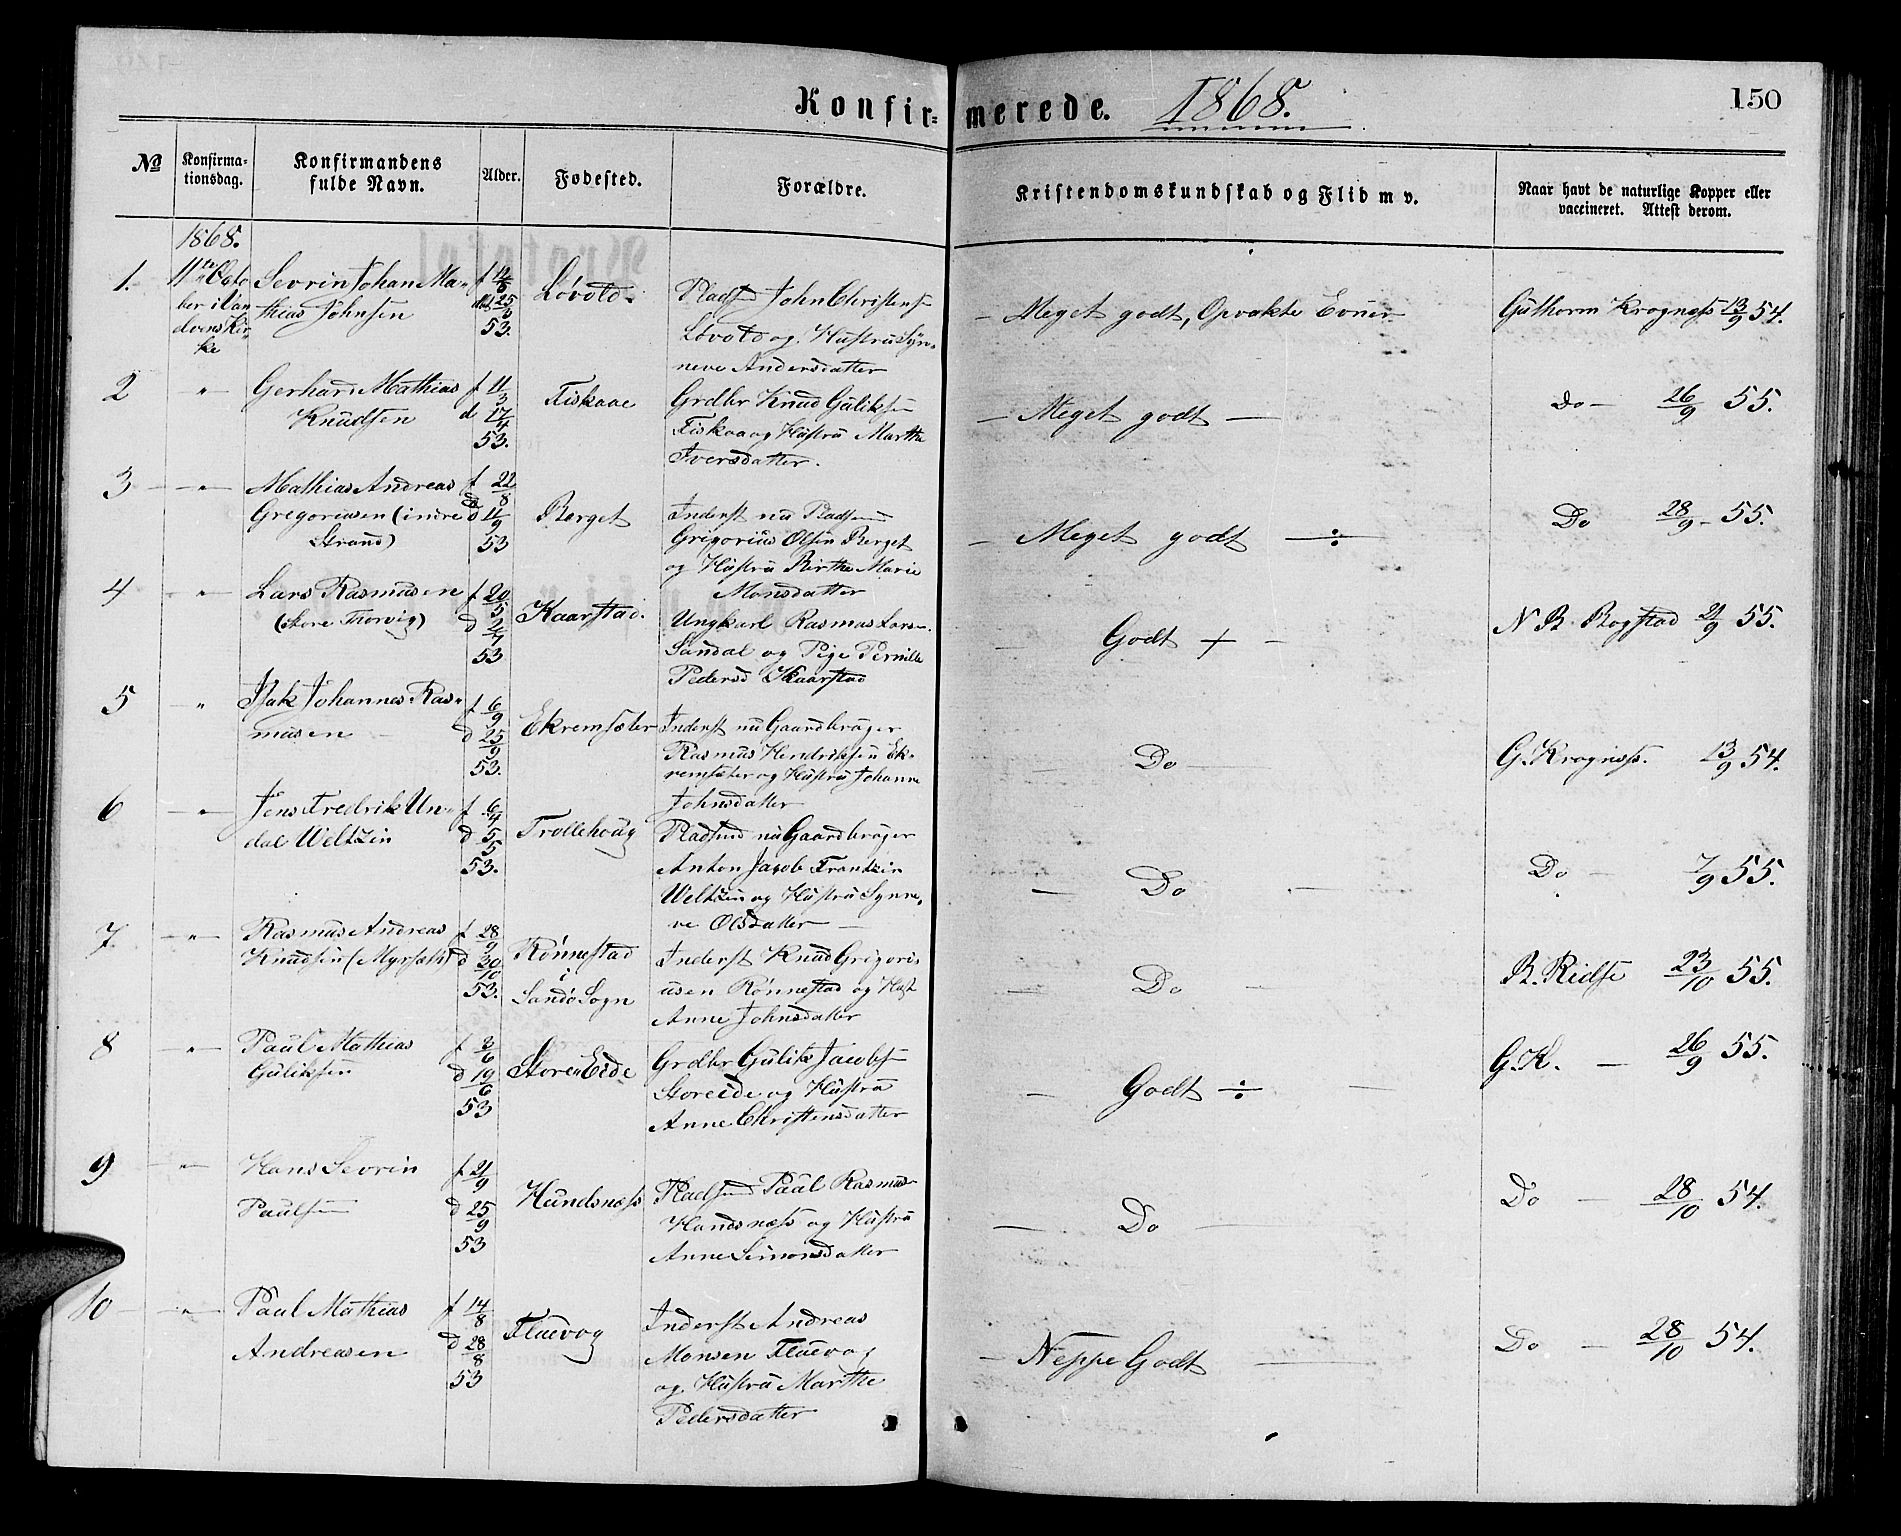 Konfir=merede. 1868. 150
No
Konfirma-
tionsdag.
Konfirmandens
fulde Navn.
Alder.
Fødested.
Forældre.
Kristendomskundskab og Flid m v.
Naar havt de naturlige Kopper eller
vaccineret. Attest derom.
1868.
1. 11te Octo
ber i Van
dvens Kir-
ke
Sevrin Johan Ma-
thias Johnsen
53.
Løvold.
Pladsmd John Christens
Løvold og Hustru Syn-
neve Andersdatter
Meget godt, Opvakte Evner
Guthorm Krognæss 13/9 54.
2 " Gerhard Mathias
Knudsen
f 11/3
d 17/4
53.
Fiskaae
Grdbr Knud Guliksen
Fiskaa og Hustru Marthe
Iversdatter.
Meget godt —
Do — 26/9 55.
3 — " Mathias Andreas
Gregoriusen (indre
Strand)
f 22/8
d 11/9
53
Berget
Inderst nu Pladsmd
Grigorius Olsen Berget
og Hustru Birthe Marie
Monsdatter
Meget godt ÷
Do 28/9 - 55.
4 " Lars Rasmusen
(store Thorvig)
f 20/5
d 2/7
53
Kaarstad.
Ungkarl Rasmus Lars-
Sandal og Pige Pernille
Pedersd Kaarstad
Godt +
N B. Bogstad 21/9 55.
5 " Isak Johannes Ras-
musen
f 6/9
d 25/9
53.
Ekremsæter
Inderst nu Gaardbruger
Rasmus Hendriksen Ek-
remsæter og Hustru Johanne
Johnsdatter
Do
G. Krogness. 13/9 54.
6 " Jens Fredrik Un-
dal Weltzin
f 6/4
d 5/5
53.
Trollehoug
Pladsmd nu Gaardbruger
Anton Jacob Frantzin
Weltzin og Hustru Synne-
ve Olsdatter —
Do
Do — 7/9 55.
7. " Rasmus Andreas
Knudsen (Myrsæth)
f 28/9
d 30/10
53.
Rønnestad
i
Sandø Sogn
Inderst Knud Grigori-
usen Rønnestad og Hust
Anne Johnsdatter
Do
B. Ridse 23/10 55.
8 " Paul Mathias
Guliksen
f 3/6
d 19/6
53
Store Eide
Grdbr Gulik Jacobs
Storeide og Hustru
Anne Christensdatter
Godt ÷
G. K. — 26/9 55.
9 " Hans Sevrin
Paulsen
f 21/9
d 25/9
53
Hundsnæss
Pladsmd Paul Rasmus-
Hundsnæss og Hustru
Anne Simonsdatter
Do
Do — 28/10 54.
10 " Paul Mathias
Andreasen
f 14/8
d 28/8
53
Fluevog
Inderst Andreas
Monsen Fluevog
og Hustru Marthe
Pedersdatter
Neppe Godt
Do — 28/10 54.